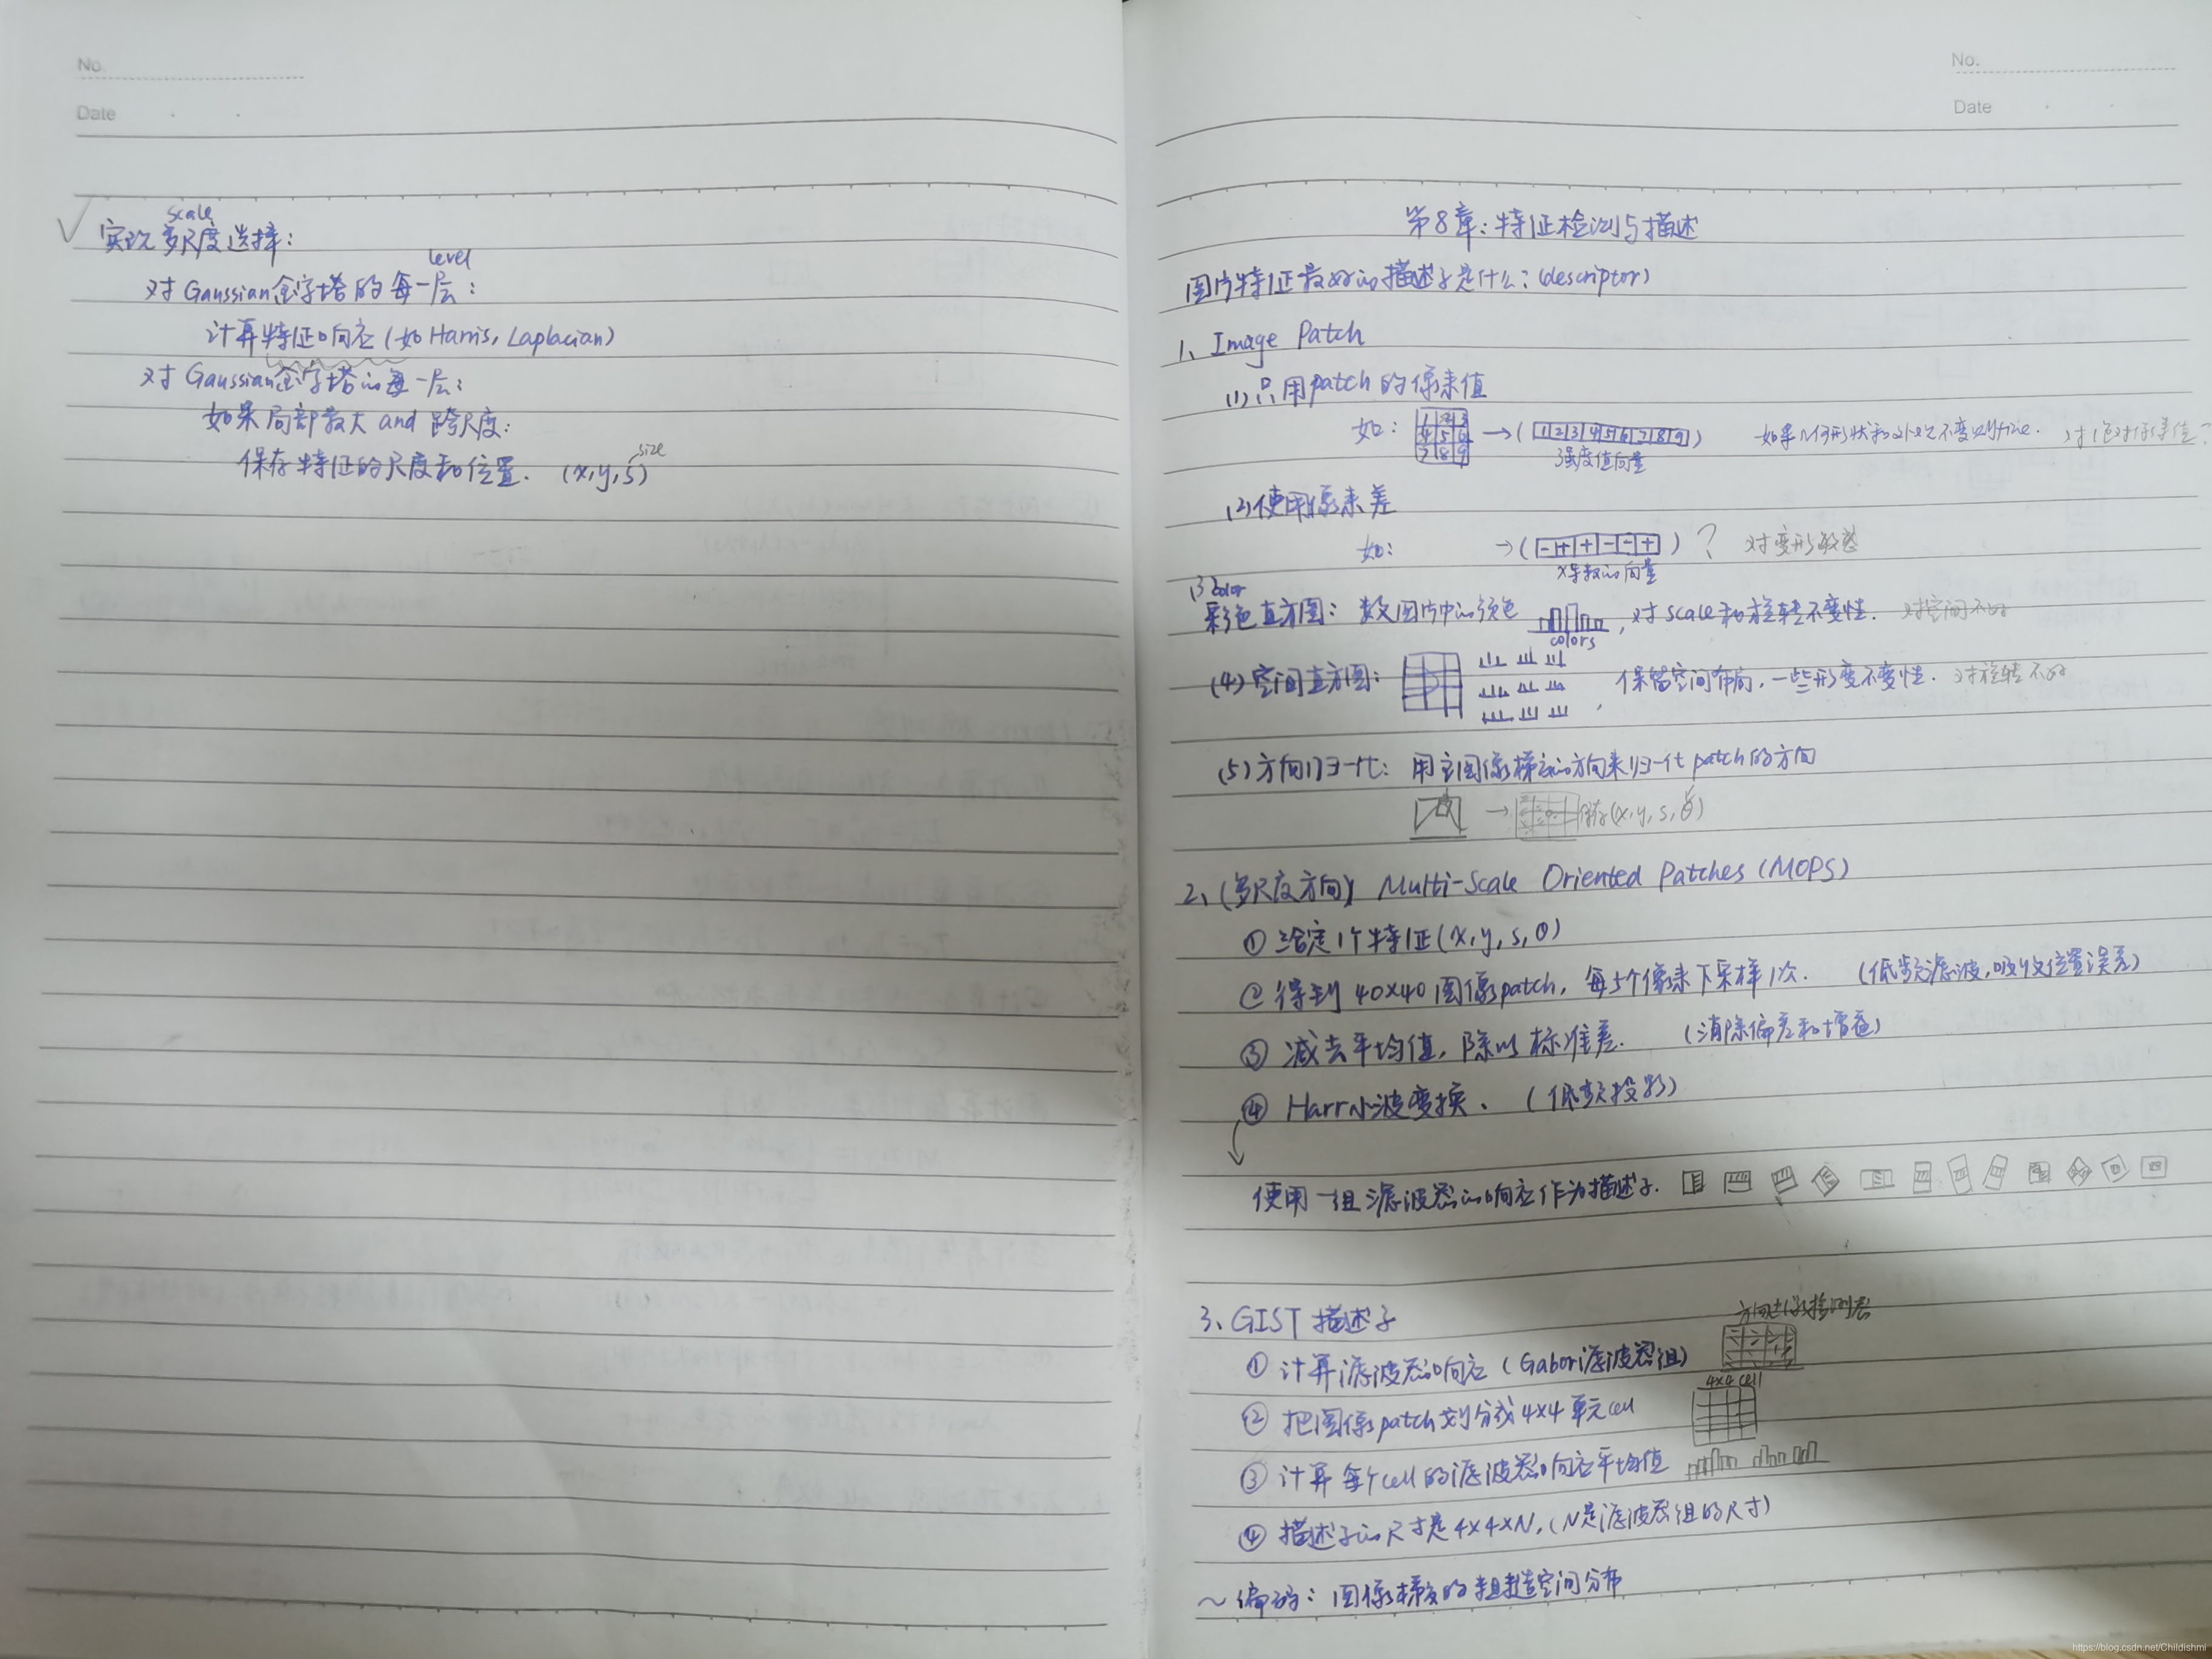 No.
Date
scale
实现多尺度选择：
level
对Gaussian金字塔的每一层：
计算特征响应（如Harris, Laplacian）
对Gaussian金字塔的每一层：
如果局部最大 and 跨尺度：
保存特征的尺度和位置. (x,y,s) size
No.
Date
第8章：特征检测与描述
图片特征最好的描述子是什么：(descriptor)
1、Image Patch
(1)只用patch的像素值
如： 1 2 3 4 5 6 7 8 9 →( 1 2 3 4 5 6 7 8 9 ) 如果几何形状和外观不变
强度值向量
(2)使用像素差
如： →( - + + - - + ) ? 对变形敏感
x导数的向量
(3) color
彩色直方图：数图片中的颜色 , 对scale和旋转不变性. 对空间不好
colors
(4)空间直方图： , 保留空间布局,一些形变不变性. 对旋转不好
(5)方向归一化：用主图像梯度的方向来归一化patch的方向
→ 保存(x,y,s,θ)
2、(多尺度方向) Multi-Scale Oriented Patches (MOPS)
① 给定1个特征(x,y,s,θ)
② 得到40×40图像patch, 每5个像素下采样1次. (低频滤波,吸收位置误差)
③ 减去平均值, 除以标准差. (消除偏差和增益)
④ Harr小波变换、(低频投影)
使用一组滤波器的响应作为描述子.
3、GIST描述子
方向边缘检测器
① 计算滤波器响应（Gabor滤波器组）
4×4 cell
② 把图像patch划分成4×4单元cell
③ 计算每个cell的滤波器响应平均值
④ 描述子的尺寸是4×4×N,(N是滤波器组的尺寸)
～编码：图像梯度的粗糙空间分布
https://blog.csdn.net/Childishmi